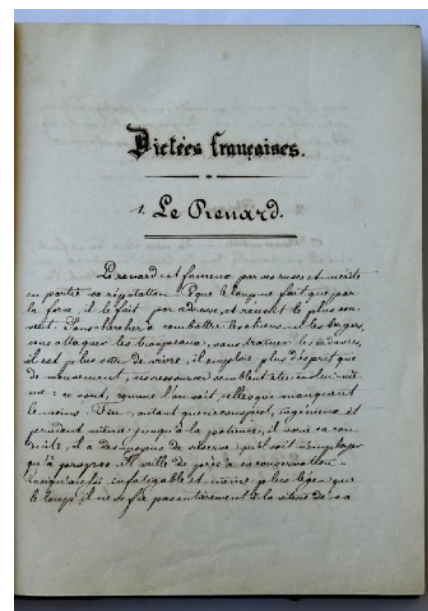 Dictées françaises.
1. Le Renard.
Le renard est fameux par ses ruses et mérite
en partie sa réputation. Ce que le loup ne fait que par
la force, il le fait par adresse, et réussit le plus sou-
vent. Sans chercher à combattre les chiens ni les bergers,
sans attaquer les troupeaux, sans traîner les cadavres,
il est plus sûr de vivre, il emploie plus d'esprit que
de mouvement, ses ressources semblent être en lui-mê-
me: ce sont, comme l'on sait, celles qui manquent
le moins. Fin, autant que circonspect, ingénieux et
prudent même jusqu'à la patience, il varie sa con-
duite, il a des moyens de réserve qu'il sait n'employer
qu'à propos. Il veille de près à sa conservation –
quoiqu'aussi infatigable et même plus léger que
le loup, il ne se fie pas entièrement à la vitesse de sa